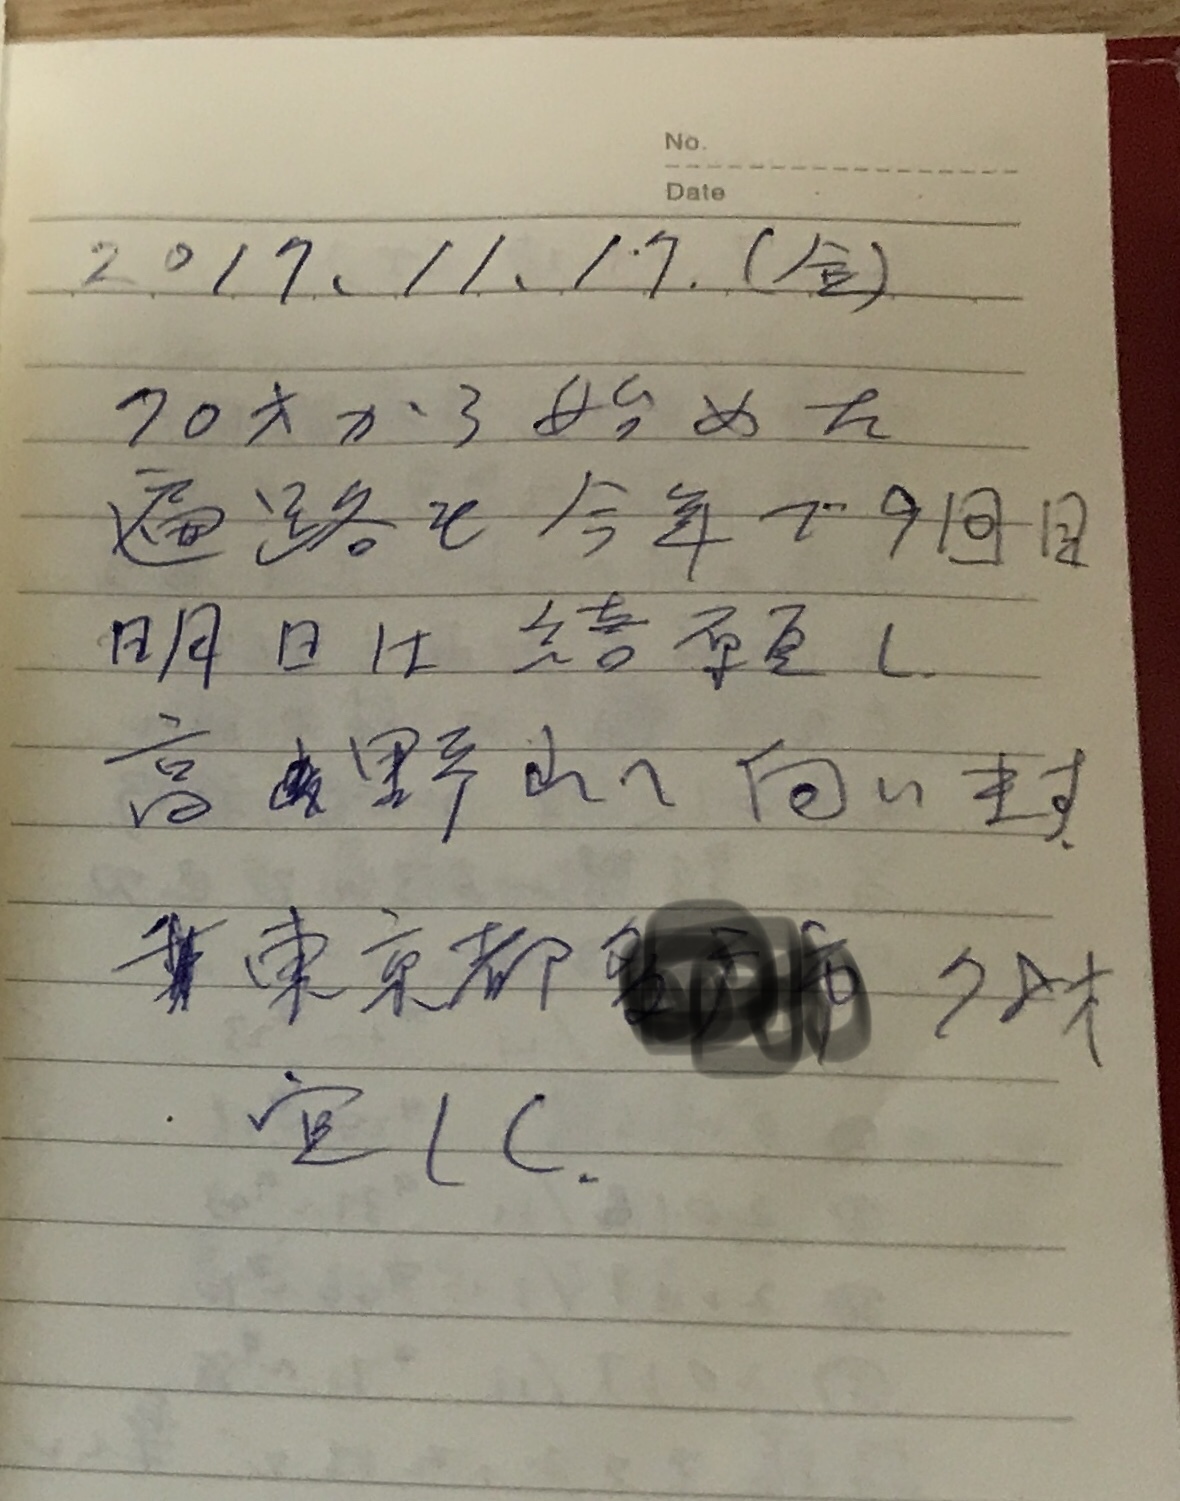 No.
Date
2017、11、17.(金)
70才から始めた
遍路も今年で9回目
明日は結願し
高野山へ向います.
東京都 78才
宜しく.